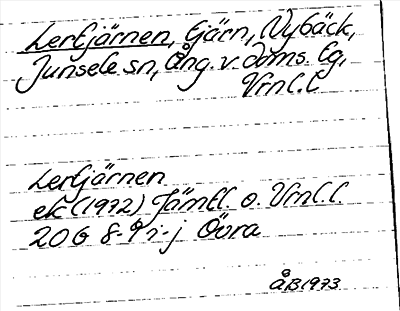 Lertjärnen, tjärn, Nybäck,
Junsele sn, Ång. v. doms. lg,
Vrnl.l
Lertjärnen
ek (1972) Jämtl. o. Vrnl.l.
20 G 8-9 i-j Övra
ÅB 1973